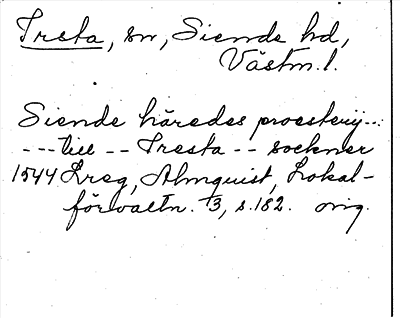 Tresta, sn, Siende hd,
Västm. l.
Siende häredes proesteny...
--- till -- Tresta -- sockner
1544 Lreg, Almquist, Lokal-
förvaltn. 3, s. 182. orig.